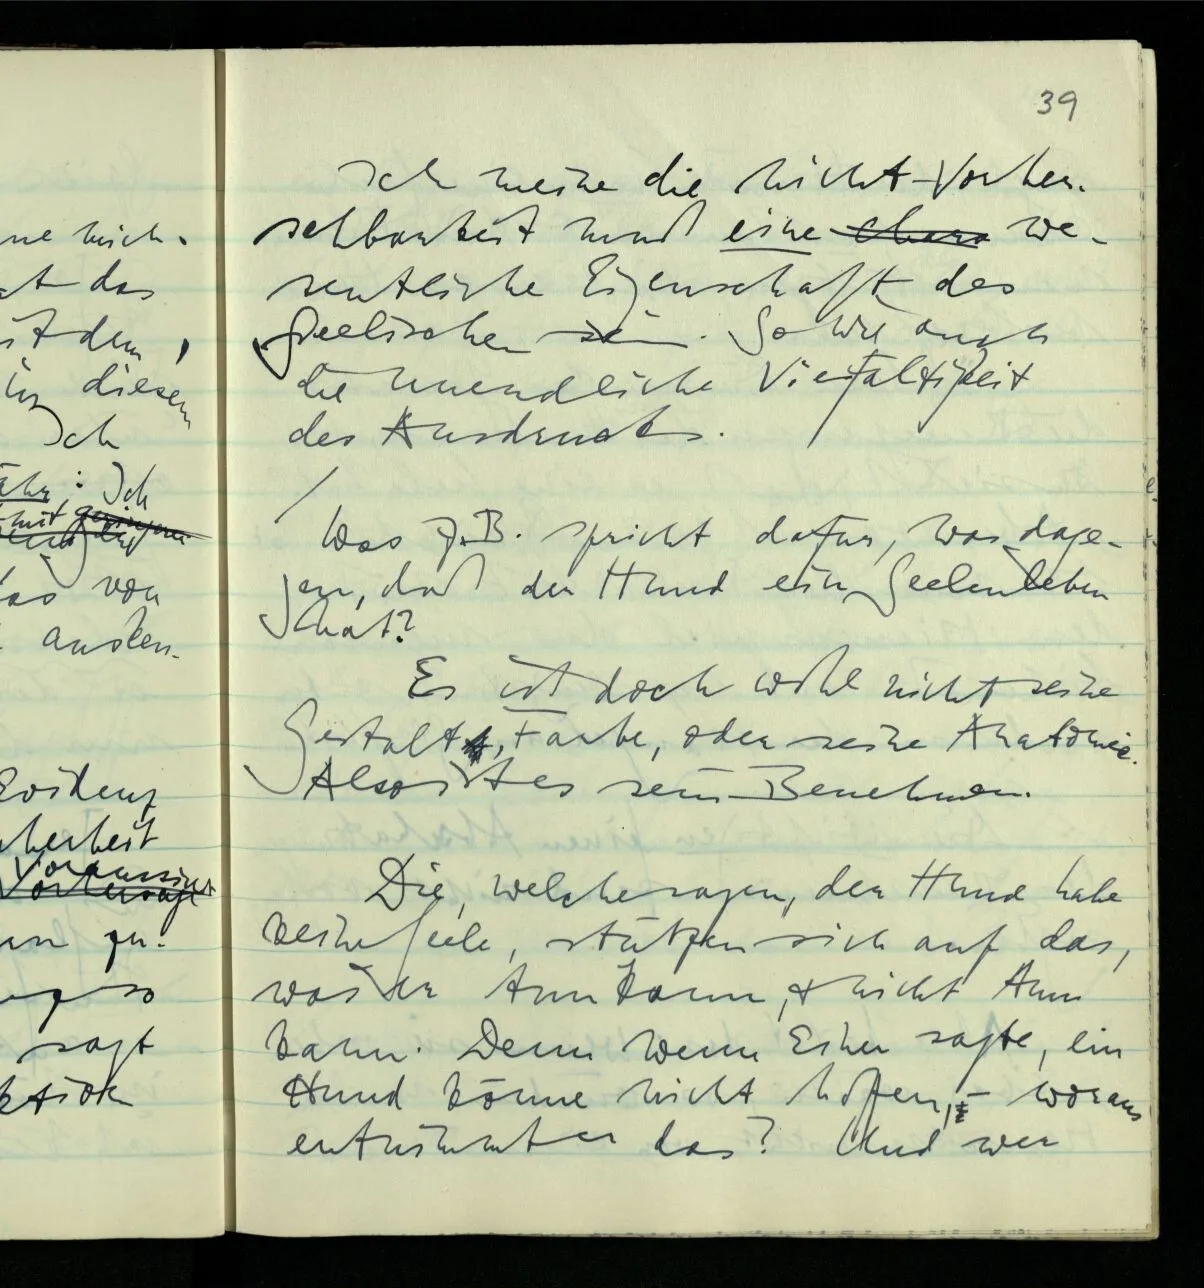 ne nich-
at das
it dem,
in diesem
Ich
ähr; Ich
mit geringen
das von
ausken-
Evidenz
cherheit
Voraussicht
Vorhersage
zu-
so
sagt
ktiok
39
Ich meine die Nicht-Vorher-
sehbarkeit muß eine Chara we-
sentliche Eigenschaft des
Seelischen sein. So wie auch
die unendliche Vielfältigkeit
des Ausdrucks.
/
Was z.B. spricht dafür, was dage-
gen, daß der Hund ein Seelenleben
hat?
Es ist doch wohl nicht seine
Gestalt, Farbe, oder seine Anatomie.
Also ist es sein Benehmen.
Die, welche sagen, der Hund habe
keine Seele, stützen sich auf das,
was er tun kann, & nicht tun
kann. Denn wenn Einer sagte, ein
Hund könne nicht hoffen, – woraus
entnimmt er das? Und wer